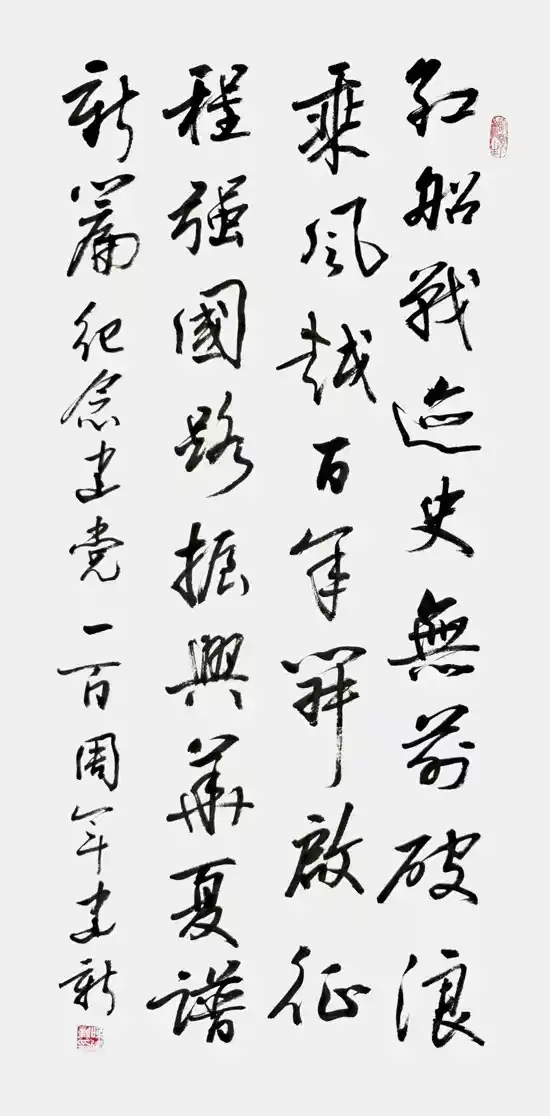 红船戰迹史無前破浪
乘風越百年開啟征
程强國路振興華夏譜
新篇纪念建党一百周年建新